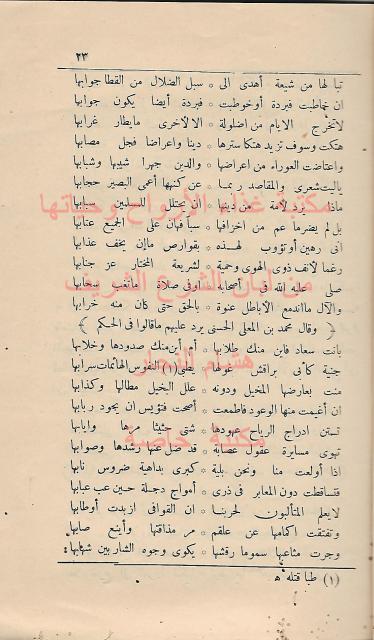 ٢٣
تبا لها من شيعة أهدى الى * سبل الضلال من القطا جوابها
ان خاطبت فبردة أوخوطبت * فبردة أيضا يكون جوابها
لاتخرج الايام من اضلولة * الالأخرى مايطار غرابها
هتكت وسوف تزيد هتكا سترها * دينا واعراضا فجل مصابها
واعتاضت العوراء من اعراضها * والدين جهرا شيبها وشبابها
ياليت شعرى والمقاصد ربما * عن كنهها أعمى البصير حجابها
ماذا برد لامة من دينها * ان يحتلل للمسلمين سبابها
بل لم يضرها عم من اخزاقها * سبا فهان على الجميع عتابها
انى رهين أوتؤوب لهذه * بقوارص ماإن يخف عذابها
رغما لانف ذوى الهوى وحمية * لشريعة المختار عز جنابها
صلى عليه الله فى أصحابه * اوفى صلاة ماتعب سحابها
والآل مااندمغ الاباطل عنوة * بالحق حتى كان منه خرابها
﴿ وقال محمد بن المعلى الحسنى يرد عليهم ماقالوا فى الحكم ﴾
بانت سعاد فابن منك طلابها * أم أين منك صدودها وخلابها
جنية كأبى براقش غولها * يطبى (١) النفوس الهائمات سرابها
منت بعارضها المخيل ودونه * علل البخيل مطالها وكذابها
ان أغيمت منها الوعود فاطمعت * أصحت فتؤيس ان يجود ربابها
تستن ادراج الرياح عهودها * شتى حثيثا مرها وايابها
تهوى مسايرة عقول عصابة * قد ضل عنها رشدها وصوابها
اذا أولعت منا ونحن بلية * كبرى بداهية ضروس نابها
فتساقطت دون المعابر فى ذرى * أمواج دجلة حين عب عبابها
لايعلم المتألبون لحربنا * ان القوافى ازبدت أوطابها
وتفتقت أكمامها عن علقم * مر مذاقتها وأينع صابها
وجرت مثاعبها سموما رقشها * يكوى وجوه الشاربين شهابها
(١) طبا قتله ه
مكتبة غذاء الأرواح وحياتها
من لبان الشرع الشريف
هيثم النجار
مكتبة خاصة